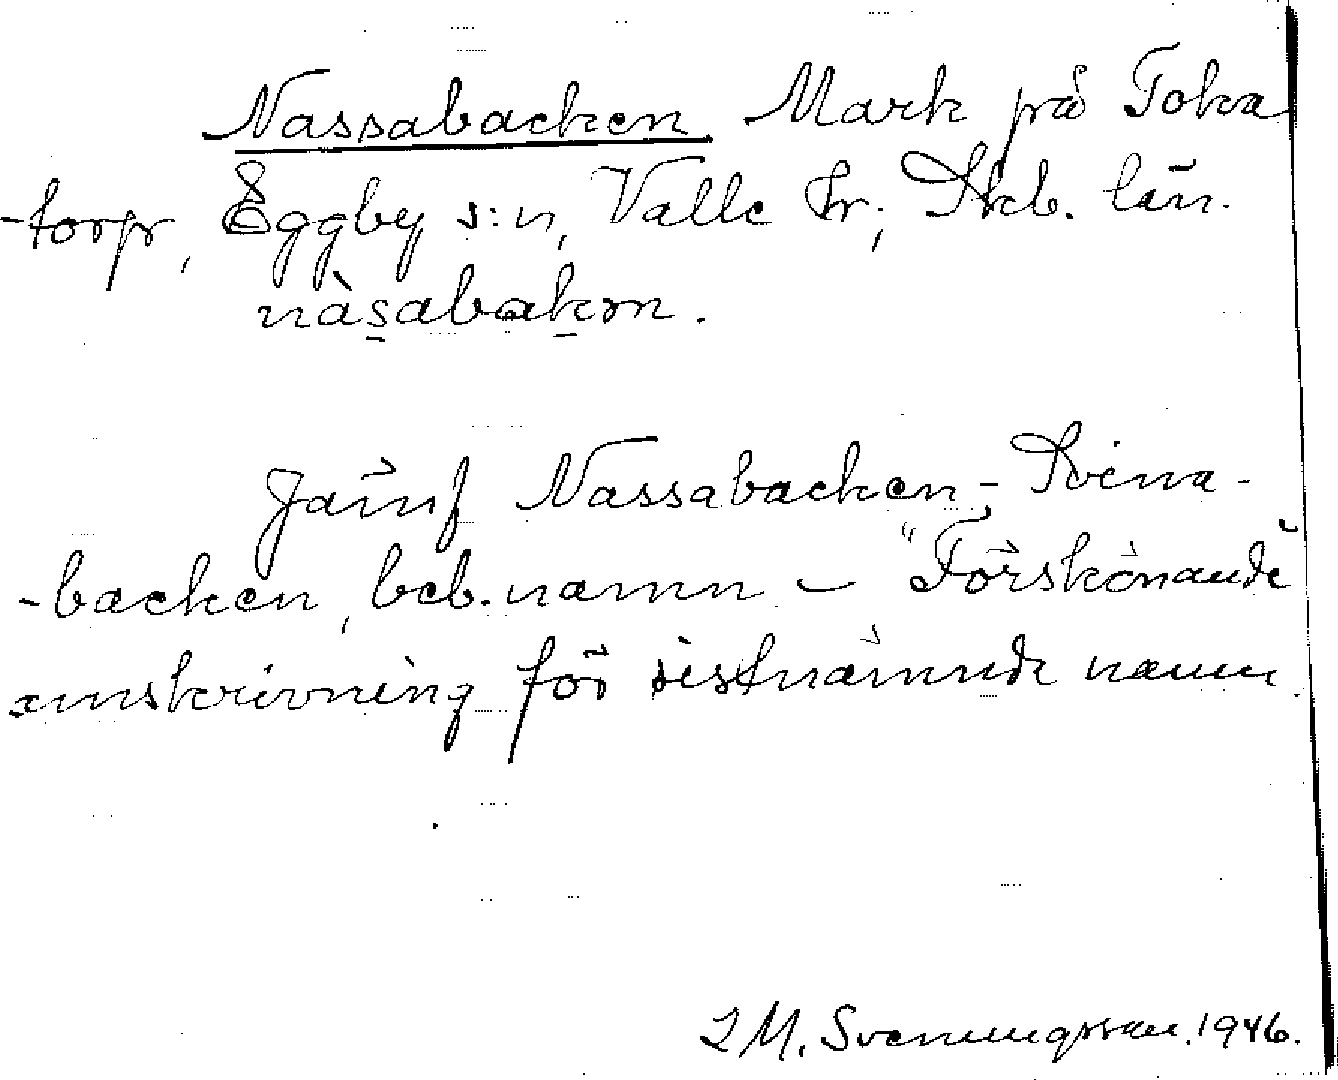 Nassabacken Mark på Toka
-torp, Eggby s:n, Valle hr; Skb. län.
nàsabakɔn.
Jämf Nassabacken - Svina-
-backen, beb. namn - "Förskönande"
omskrivning för sistnämnde namn.
I M. Svenungsson. 1946.